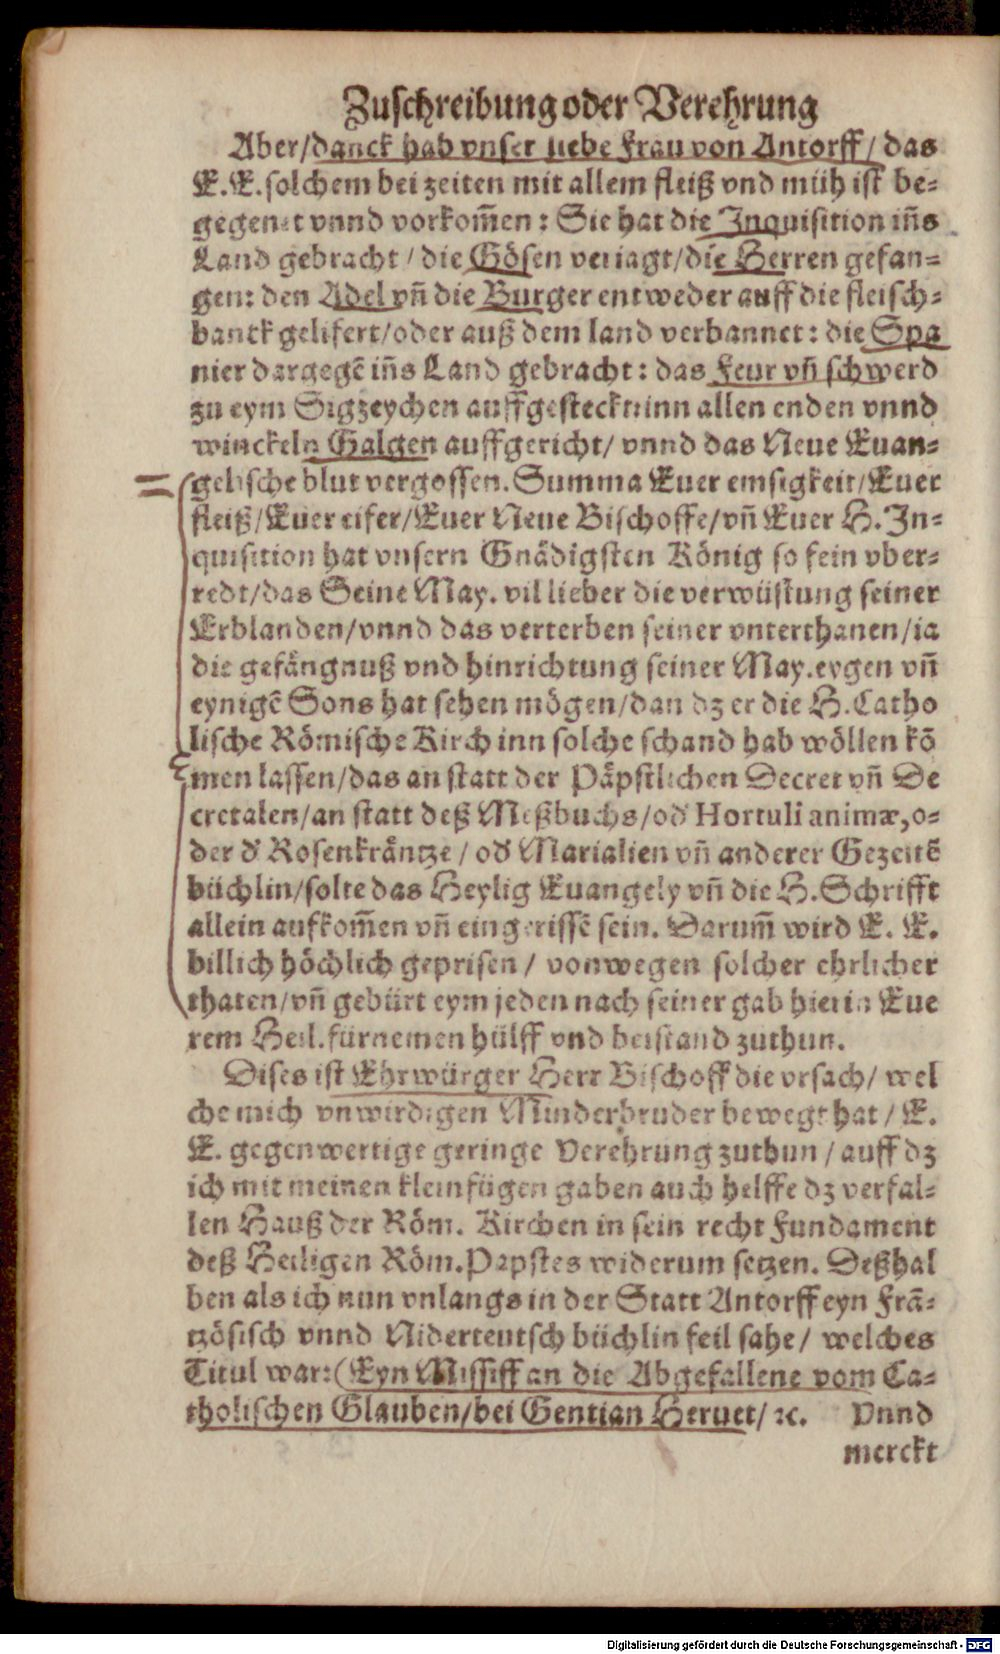 Zuschreibung oder Verehrung
Aber/danck hab vnser liebe Frau von Antorff/ das
E.E. solchem bei zeiten mit allem fleiß vnd müh ist be=
gegenet vnnd vorkom̃en: Sie hat die Inquisition iñs
Land gebracht/ die Gösen veriagt/die Herren gefan=
gen: den Adel vñ die Burger entweder auff die fleisch=
banck gelifert/oder auß dem land verbannet: die Spa
nier dargegẽ iñs Land gebracht: das Feur vñ schwerd
zu eym Sigzeychen auffgesteckt: inn allen enden vnnd
winckeln Galgen auffgericht/ vnnd das Neue Euan=
gelische blut vergossen. Summa Euer emsigkeit/Euer
fleiß/Euer eifer/Euer Neue Bischoffe/vñ Euer H. In=
quisition hat vnsern Gnädigsten König so fein vber=
redt/das Seine May. vil lieber die verwüstung seiner
Erblanden/vnnd das verterben seiner vnterthanen/ia
die gefängnuß vnd hinrichtung seiner May. eygen vñ
eynigẽ Sons hat sehen mögen/dan dz er die H. Catho
lische Römische Kirch inn solche schand hab wöllen kõ
men lassen/das an statt der Päpstlichen Decret vñ De
cretalen/an statt deß Meßbuchs/od̛ Hortuli animæ, o=
der d̛ Rosenkräntze/ od̛ Marialien vñ anderer Gezeitẽ
büchlin/solte das Heylig Euangely vñ die H. Schrifft
allein aufkom̃en vñ eingerissẽ sein. Darum̃ wird E. E.
billich höchlich geprisen/ von wegen solcher ehrlicher
thaten/vñ gebürt eym jeden nach seiner gab hierin Eue
rem Heil. fürnemen hülff vnd beistand zuthun.
Dises ist Ehrwürger Herr Bischoff die vrsach/ wel
che mich vnwirdigen Minderbruder bewegt hat/ E.
E. gegenwertige geringe Verehrung zuthun/ auff dz
ich mit meinen kleinfügen gaben auch helffe dz verfal=
len Hauß der Röm. Kirchen in sein recht Fundament
deß Heiligen Röm. Papstes widerum setzen. Deßhal
ben als ich nun vnlangs in der Statt Antorff eyn Frã=
tzösisch vnnd Niderteutsch büchlin feil sahe/ welches
Titul war: (Eyn Missiff an die Abgefallene vom Ca=
tholischen Glauben/bei Gentian Heruet/ ꝛc. Vnnd
merckt
Digitalisierung gefördert durch die Deutsche Forschungsgemeinschaft - DFG